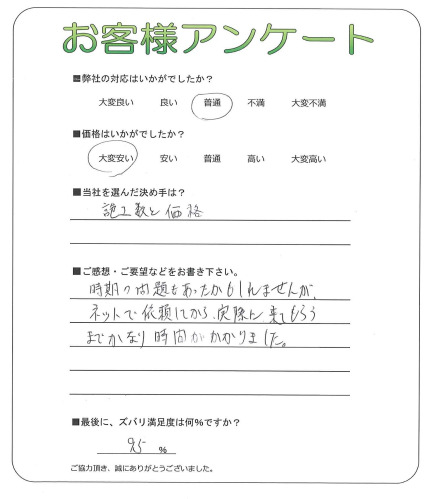 お客様アンケート
■弊社の対応はいかがでしたか?
大変良い 良い 普通 不満 大変不満
■価格はいかがでしたか?
大変安い 安い 普通 高い 大変高い
■当社を選んだ決め手は?
施工数と価格
■ご感想・ご要望などをお書き下さい。
時期の問題もあったかもしれませんが、
ネットで依頼してから、実際に来てもらう
までかなり時間がかかりました。
■最後に、ズバリ満足度は何%ですか?
95 %
ご協力頂き、誠にありがとうございました。